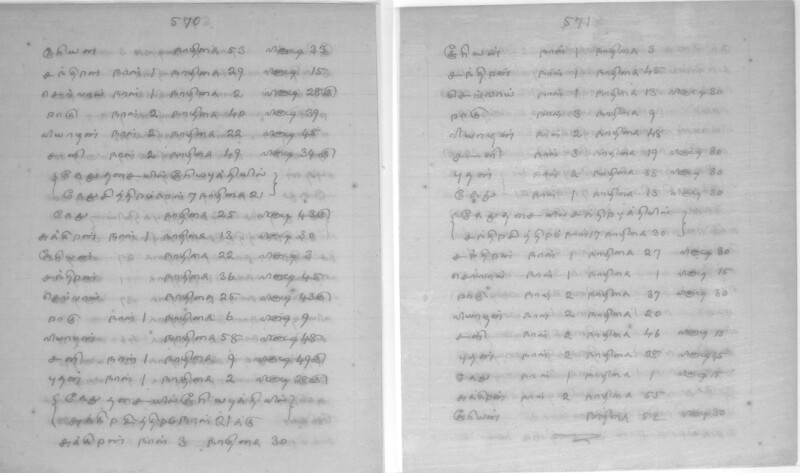 570
சூரியன் நாழிகை 53 வினாடி
சந்திரன் நாள் 1 நாழிகை 29 வினாடி 15
செவ்வாய் நாள் 1 நாழிகை 2 வினாடி 28
ராகு நாள் 2 நாழிகை 40 வினாடி 39
வியாழன் நாள் 2 நாழிகை 22 வினாடி 48
சனி நாள் 2 நாழிகை 49 வினாடி 34
கேது தசையில் சூரியபுத்தியில்
கேது சித்திரம் நாள் 7 நாழிகை 21
கேது நாழிகை 25 வினாடி 43
சுக்கிரன் நாள் 1 நாழிகை 13 வினாடி 30
சூரியன் நாழிகை 22 வினாடி 3
சந்திரன் நாழிகை 36 வினாடி 45
செவ்வாய் நாழிகை 25 வினாடி 43
ராகு நாள் 1 நாழிகை 6 வினாடி 9
வியாழன் நாழிகை 58 வினாடி 48
சனி நாள் 1 நாழிகை 9 வினாடி 49
புதன் நாள் 1 நாழிகை 2 வினாடி 28
கேது தசையில் சூரியபுத்தியில்
சுக்கிரசித்திரம் நாள் 21க்கு
சுக்கிரன் நாள் 3 நாழிகை 30
571
சூரியன் நாள் 1 நாழிகை 3
சந்திரன் நாள் 1 நாழிகை 45
செவ்வாய் நாள் 1 நாழிகை 13 வினாடி 30
ராகு நாள் 3 நாழிகை 9
வியாழன் நாள் 2 நாழிகை 48
சனி நாள் 3 நாழிகை 19 வினாடி 30
புதன் நாள் 2 நாழிகை 58 வினாடி 30
கேது நாள் 1 நாழிகை 13 வினாடி 30
கேது தசையில் சந்திரபுத்தியில்
சந்திரசித்திரம் நாள் 17 நாழிகை 30
சந்திரன் நாள் 1 நாழிகை 27 வினாடி 30
செவ்வாய் நாள் 1 நாழிகை 1 வினாடி 15
ராகு நாள் 2 நாழிகை 37 வினாடி 30
வியாழன் நாள் 2 நாழிகை 20
சனி நாள் 2 நாழிகை 46 வினாடி 15
புதன் நாள் 2 நாழிகை 28 வினாடி 45
கேது நாள் 1 நாழிகை 1 வினாடி 15
சுக்கிரன் நாள் 2 நாழிகை 55
சூரியன் நாழிகை 52 வினாடி 30